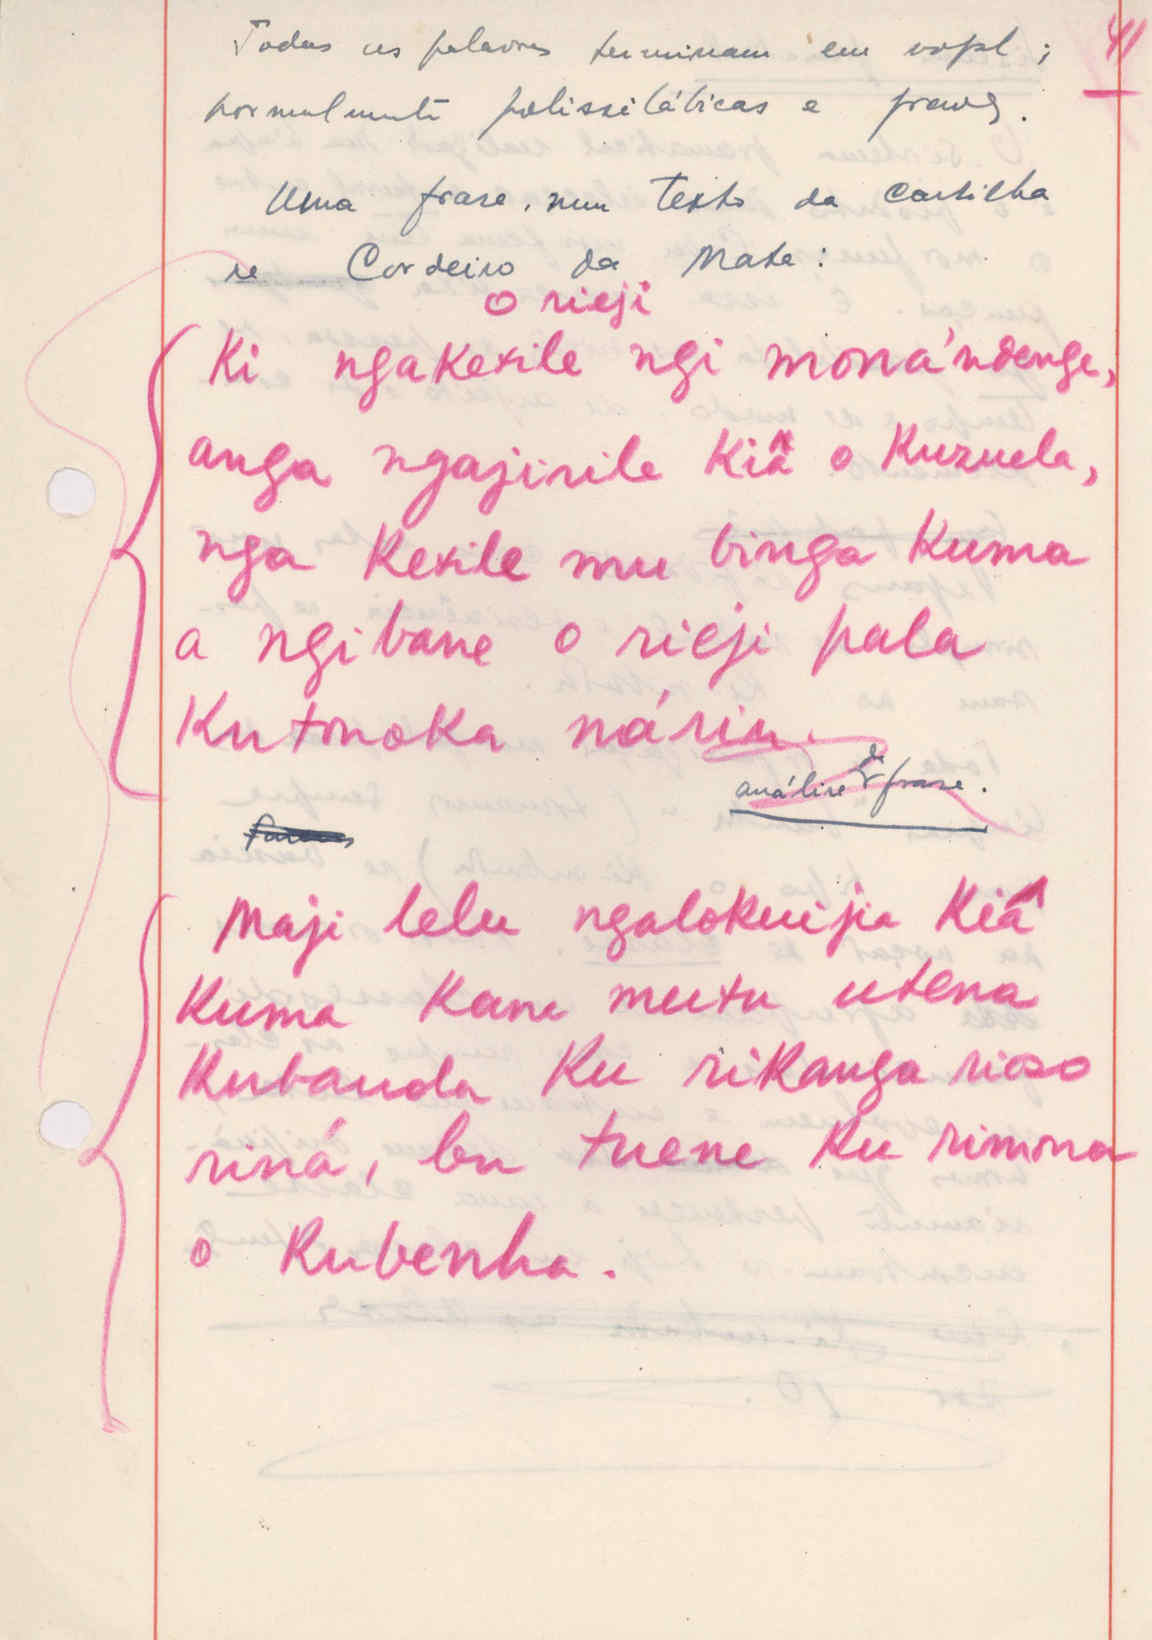 41
Todas as palavras terminam em vogal;
normalmente polissilábicas e graves.
Uma frase, num texto da cartilha
de Cordeiro da Mata:
o rieji
Ki ngakexile ngi mona'ndenge,
anga ngajirile kiá o kuzuela,
nga kexile mu binga kuma
a ngi bane o rieji pala
kutonoka náriu.
análise da frase.
Maji lelu ngalokuijia kiá
kuma kane mutu utena
kubanda ku rikanga rioso
riná, bu tuene ku rimona
o kubenha.